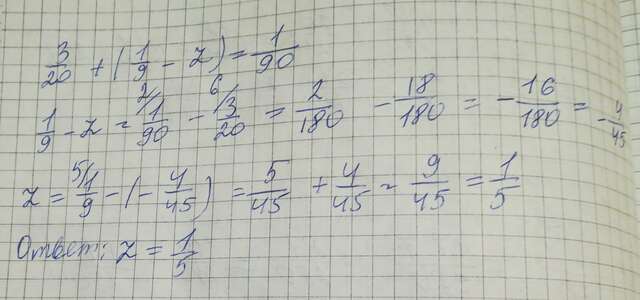 3/20 + (1/9 - z) = 1/90
1/9 - z = 2/ 1/90 - 6/ 3/20 = 2/180 - 18/180 = - 16/180 = - 4/45
z = 5/ 1/9 - (- 4/45) = 5/45 + 4/45 = 9/45 = 1/5
Ответ: z = 1/5